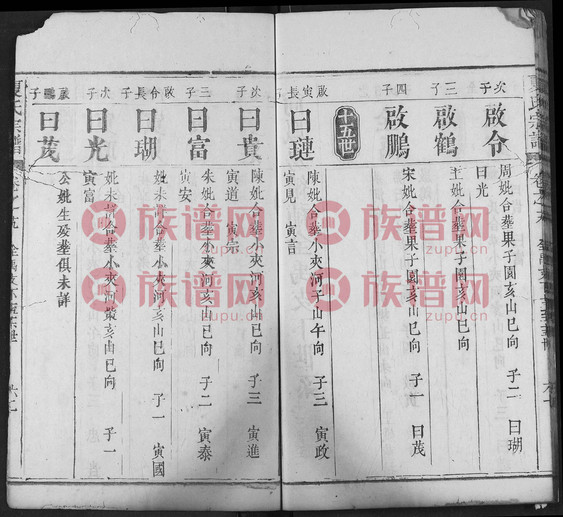 次子
啟令
周妣合塟果子園亥山巳向 子二 曰瑚
曰光
三子
啟鶴
王妣合塟果子園亥山巳向
四子
啟鵬
宋妣合塟果子園亥山巳向 子一 曰茂
十五世
啟寅長子
曰璉
陳妣合塟小夾河子山午向 子三 寅政
寅見 寅言
次子
曰貴
陳妣合塟小夾河亥山巳向 子三 寅進
寅道 寅宗
三子
曰富
朱妣合塟小夾河亥山巳向 子二 寅泰
寅安
啟令長子
曰瑚
妣未詳合塟小夾河亥山巳向 子一 寅國
次子
曰光
妣未詳合塟小夾河亥山巳向 子一
寅富
啟鵬子
曰茂
公妣生殁塟俱未詳
夏氏宗譜
族谱网
zupu.cn
族谱网
zupu.cn
族谱网
zupu.cn
族谱网
zupu.cn